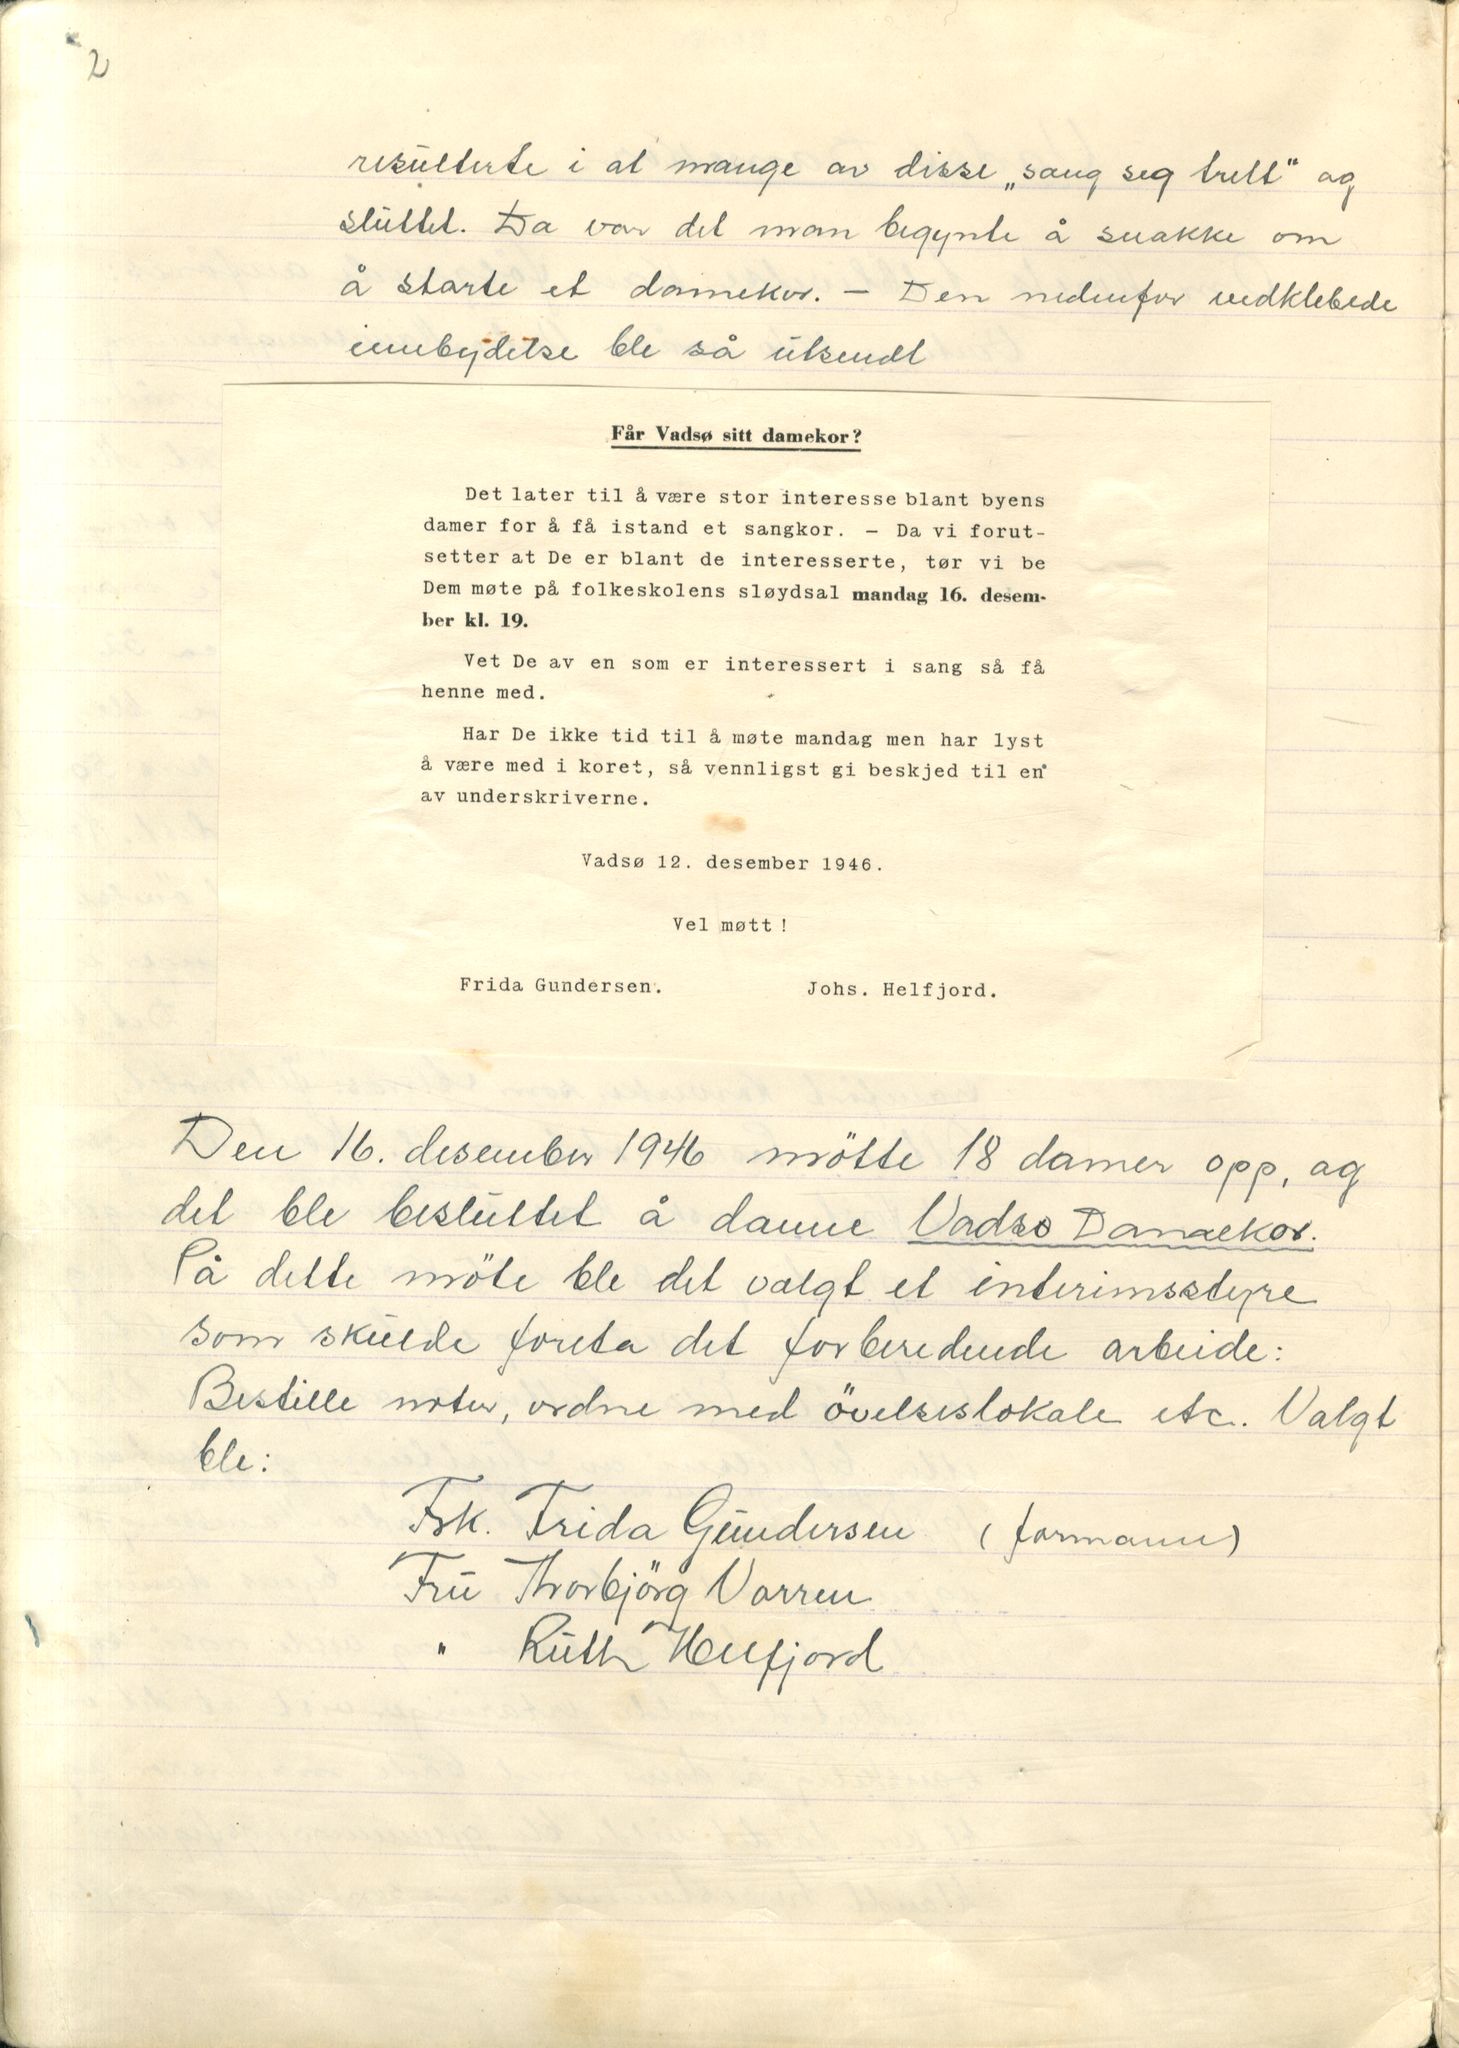 2
resulterte i at mange av disse „sang seg trett" og
sluttet. Da var det man begynte å snakke om
å starte et damekor. – Den nedenfor vedklebede
innbydelse ble så utsendt
Får Vadsø sitt damekor?
Det later til å være stor interesse blant byens
damer for å få istand et sangkor. – Da vi forut-
setter at De er blant de interesserte, tør vi be
Dem møte på folkeskolens sløydsal mandag 16. desem-
ber kl. 19.
Vet De av en som er interessert i sang så få
henne med.
Har De ikke tid til å møte mandag men har lyst
å være med i koret, så vennligst gi beskjed til en
av underskriverne.
Vadsø 12. desember 1946.
Vel møtt!
Frida Gundersen. Johs. Helfjord.
Den 16. desember 1946 mötte 18 damer opp, og
det ble besluttet å danne Vadsø Damekor.
På dette möte ble det valgt et interimsstyre
som skulde foreta det forberedende arbeide:
Bestille noter, ordne med övelseslokale etc. Valgt
ble:
Frk. Frida Gundersen (formann)
Fru Thorbjörg Varren
" Ruth Helfjord